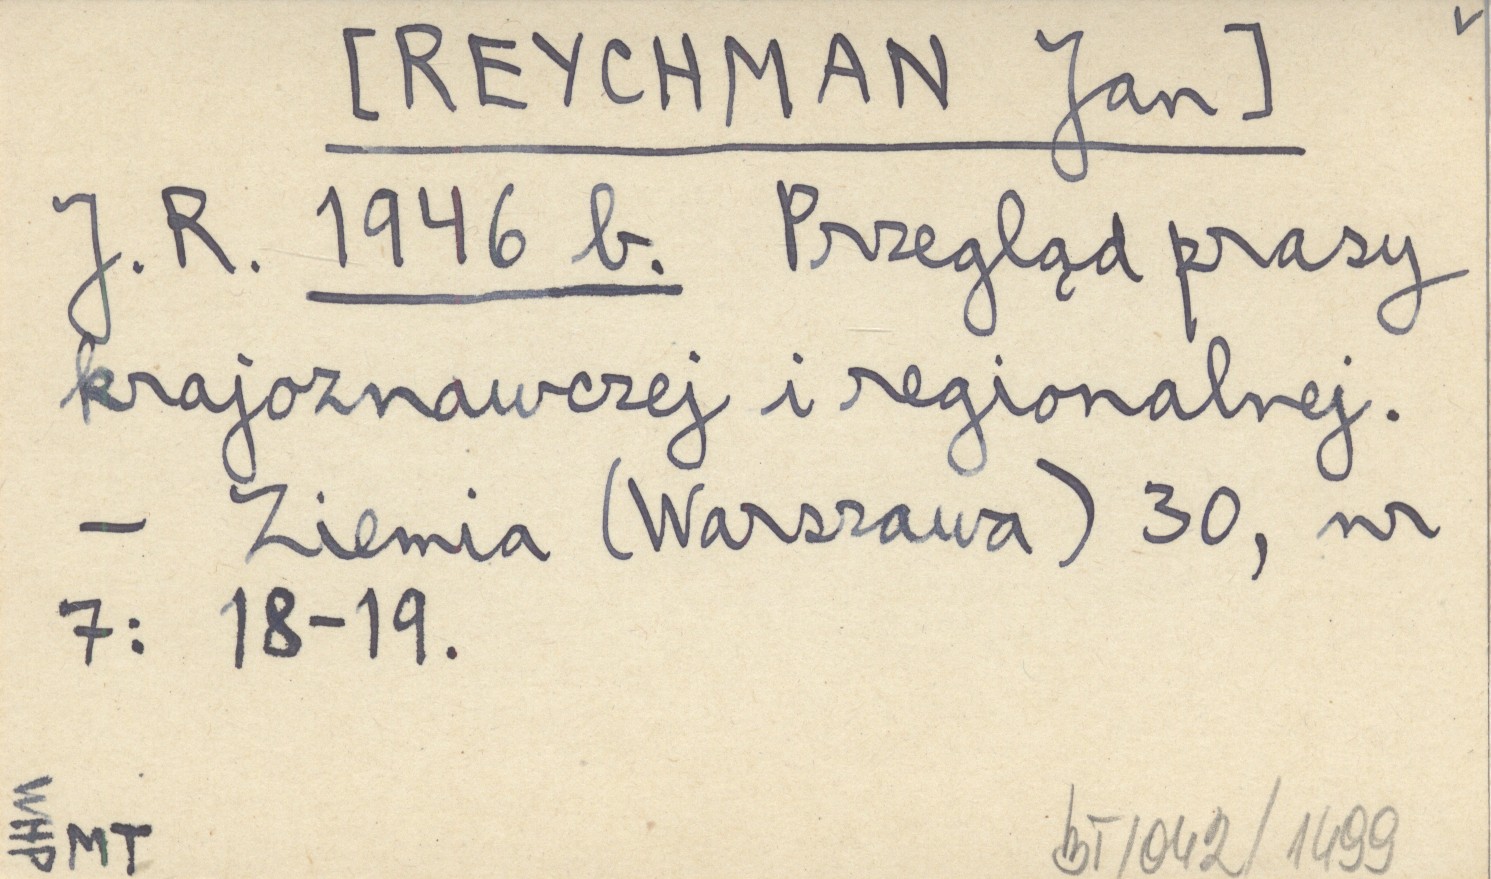 [REYCHMAN Jan]
J. R. 1946 b. Przegląd prasy
krajoznawczej i regionalnej.
- Ziemia (Warszawa) 30, nr
7: 18-19.
WHP
MT
BT/042/1499